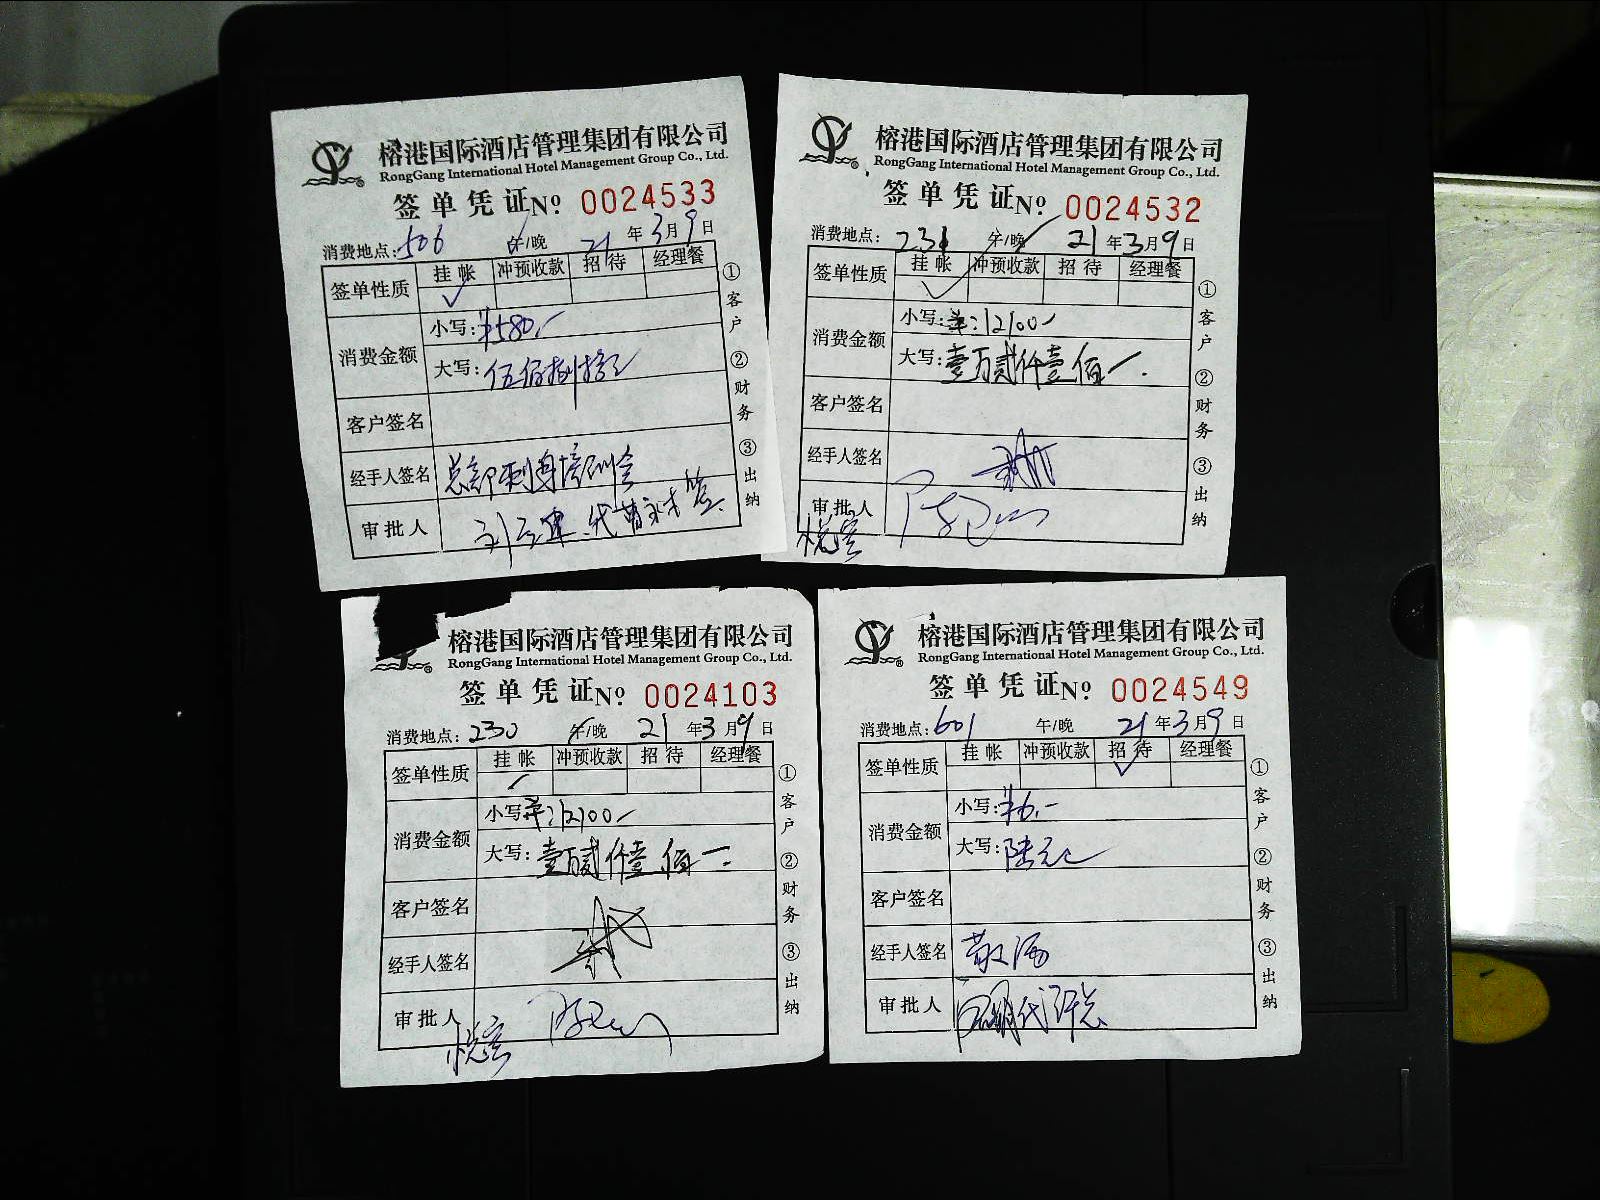 榕港国际酒店管理集团有限公司
RongGang International Hotel Management Group Co., Ltd.
签单凭证 No. 0024533
消费地点: 506 午/晚 21年3月9日
签单性质 挂帐 冲预收款 招待 经理餐
✓
消费金额 小写: ¥580.-
大写: 伍佰捌拾元
客户签名
经手人签名 总部 培训会
审批人
①客户 ②财务 ③出纳
榕港国际酒店管理集团有限公司
RongGang International Hotel Management Group Co., Ltd.
签单凭证 No. 0024532
消费地点: 231 午/晚 21年3月9日
签单性质 挂帐 冲预收款 招待 经理餐
✓
消费金额 小写: ¥:12100-
大写: 壹万贰仟壹佰一.
客户签名
经手人签名
审批人
①客户 ②财务 ③出纳
榕港国际酒店管理集团有限公司
RongGang International Hotel Management Group Co., Ltd.
签单凭证 No. 0024103
消费地点: 230 午/晚 21年3月9日
签单性质 挂帐 冲预收款 招待 经理餐
✓
消费金额 小写: ¥:12100-
大写: 壹万贰仟壹佰一.
客户签名
经手人签名
审批人
①客户 ②财务 ③出纳
榕港国际酒店管理集团有限公司
RongGang International Hotel Management Group Co., Ltd.
签单凭证 No. 0024549
消费地点: 601 午/晚 21年3月9日
签单性质 挂帐 冲预收款 招待 经理餐
✓
消费金额 小写: ¥6.-
大写: 陆元
客户签名
经手人签名
审批人
①客户 ②财务 ③出纳